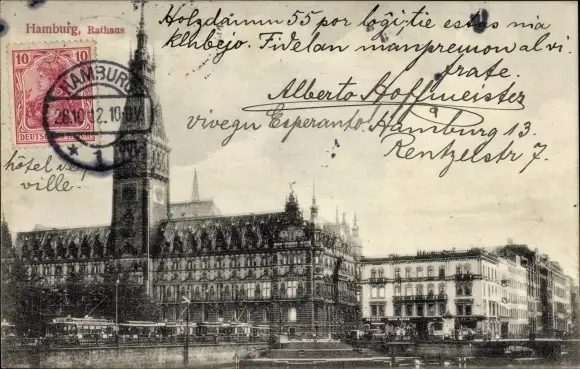 Holzdamm 55 por loĝi, tie estas mia
Hamburg, Rathaus
klubejo. Fidelan manpremon al vi,
frate.
Alberto Hoffmeister
vivegu Esperanto! Hamburg 13.
Rentzelstr 7.
10 10
DEUTSCHES REICH
HAMBURG
28.10.12.10-11V.
* 1
hôtel de
ville.